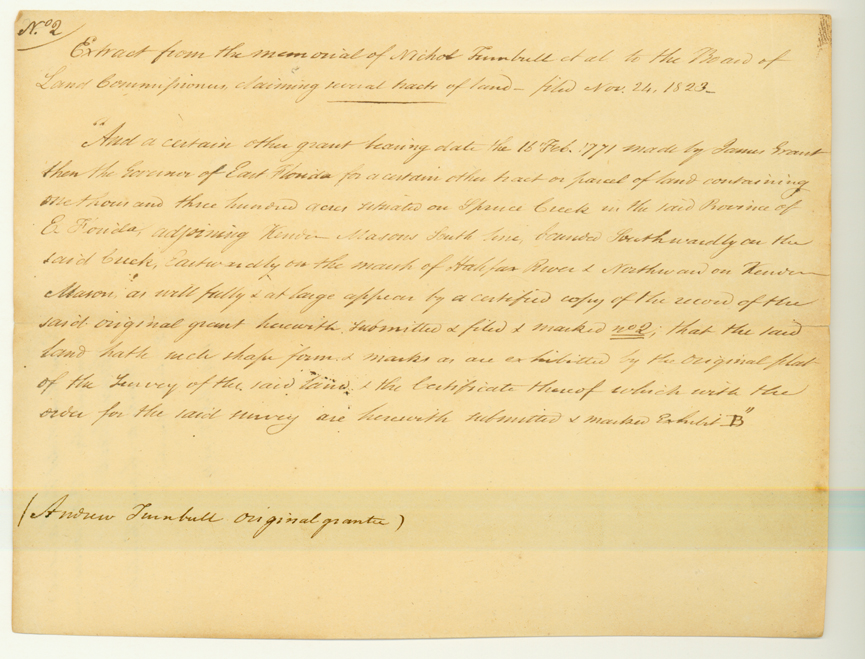 No. 2
Extract from the memorial of Nichol Turnbull et al to the Board of
Land Commissioners, claiming several tracts of land – filed Nov. 24, 1823 –
"And a certain other grant bearing date the 16 Feb. 1771 made by James Grant
then the Governor of East Florida for a certain other tract or parcel of land containing
one thousand three hundred acres situated on Spruce Creek in the said Province of
E. Florida, adjoining Masons South line, bounded Southwardly on the
said Creek, Eastwardly on the marsh of Halifax River & Northward on
Mason," as will fully & at large appear by a certified copy of the record of the
said original grant herewith submitted & filed & marked no 2; that the said
land hath such shape form & marks as are exhibited by the original plat
of the Survey of the said land & the Certificate thereof which with the
order for the said survey are herewith submitted & marked Exhibit B"
(Andrew Turnbull original grantee)